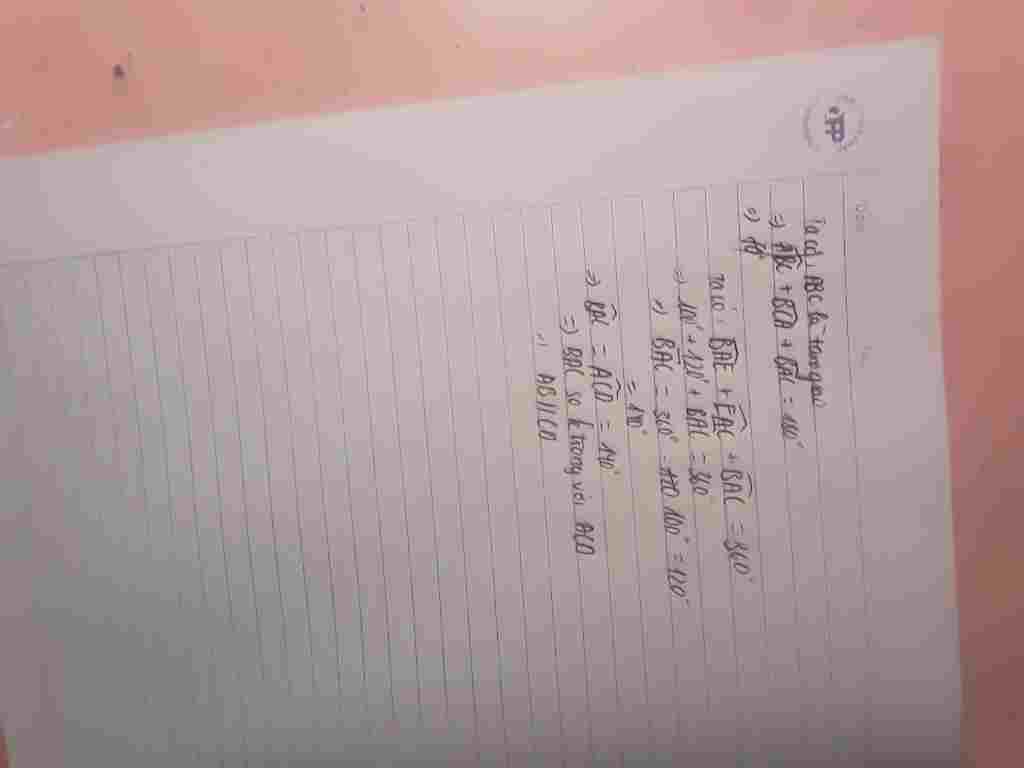 Ta có ABC là tam giác
=> ABC + BCA + BAC = 180°
=>
Ta có: BAE + EAC + BAC = 360°
=> 100° + 120° + BAC = 360
=> BAC = 360° - 100° = 120°
= 140°
=> BAC = ACD = 140°
=> BAC so le trong với ACD
=> AB//CD